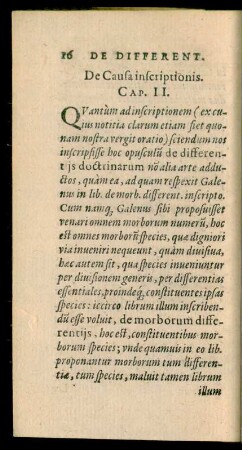 16 DE DIFFERENT.
De Causa inscriptionis.
CAP. II.
QVantùm ad inscriptionem (ex cu-
ius notitia clarum etiam fiet quo-
nam nostra vergit oratio) sciendum nos
inscripsisse hoc opusculũ de differen-
tijs doctrinarum nõ alia arte addu-
ctos, quàm ea, ad quam respexit Gale-
nus in lib. de morb. different. inscripto.
Cum namq́; Galenus sibi proposuisset
venari omnem morborum numerũ, hoc
est omnes morborũ species, quæ digniori
via inueniri nequeunt, quàm diuisiua,
hæc autem sit, qua species inueniuntur
per diuisionem generis, per differentias
essentiales, proindeq́; constituentes ipsas
species: iccirco librum illum inscriben-
dũ esse voluit, de morborum diffe-
rentijs, hoc est, constituentibus mor-
borum species; vnde quamuis in eo lib.
proponantur morborum tum differen-
tiæ, tum species, maluit tamen librum
illum